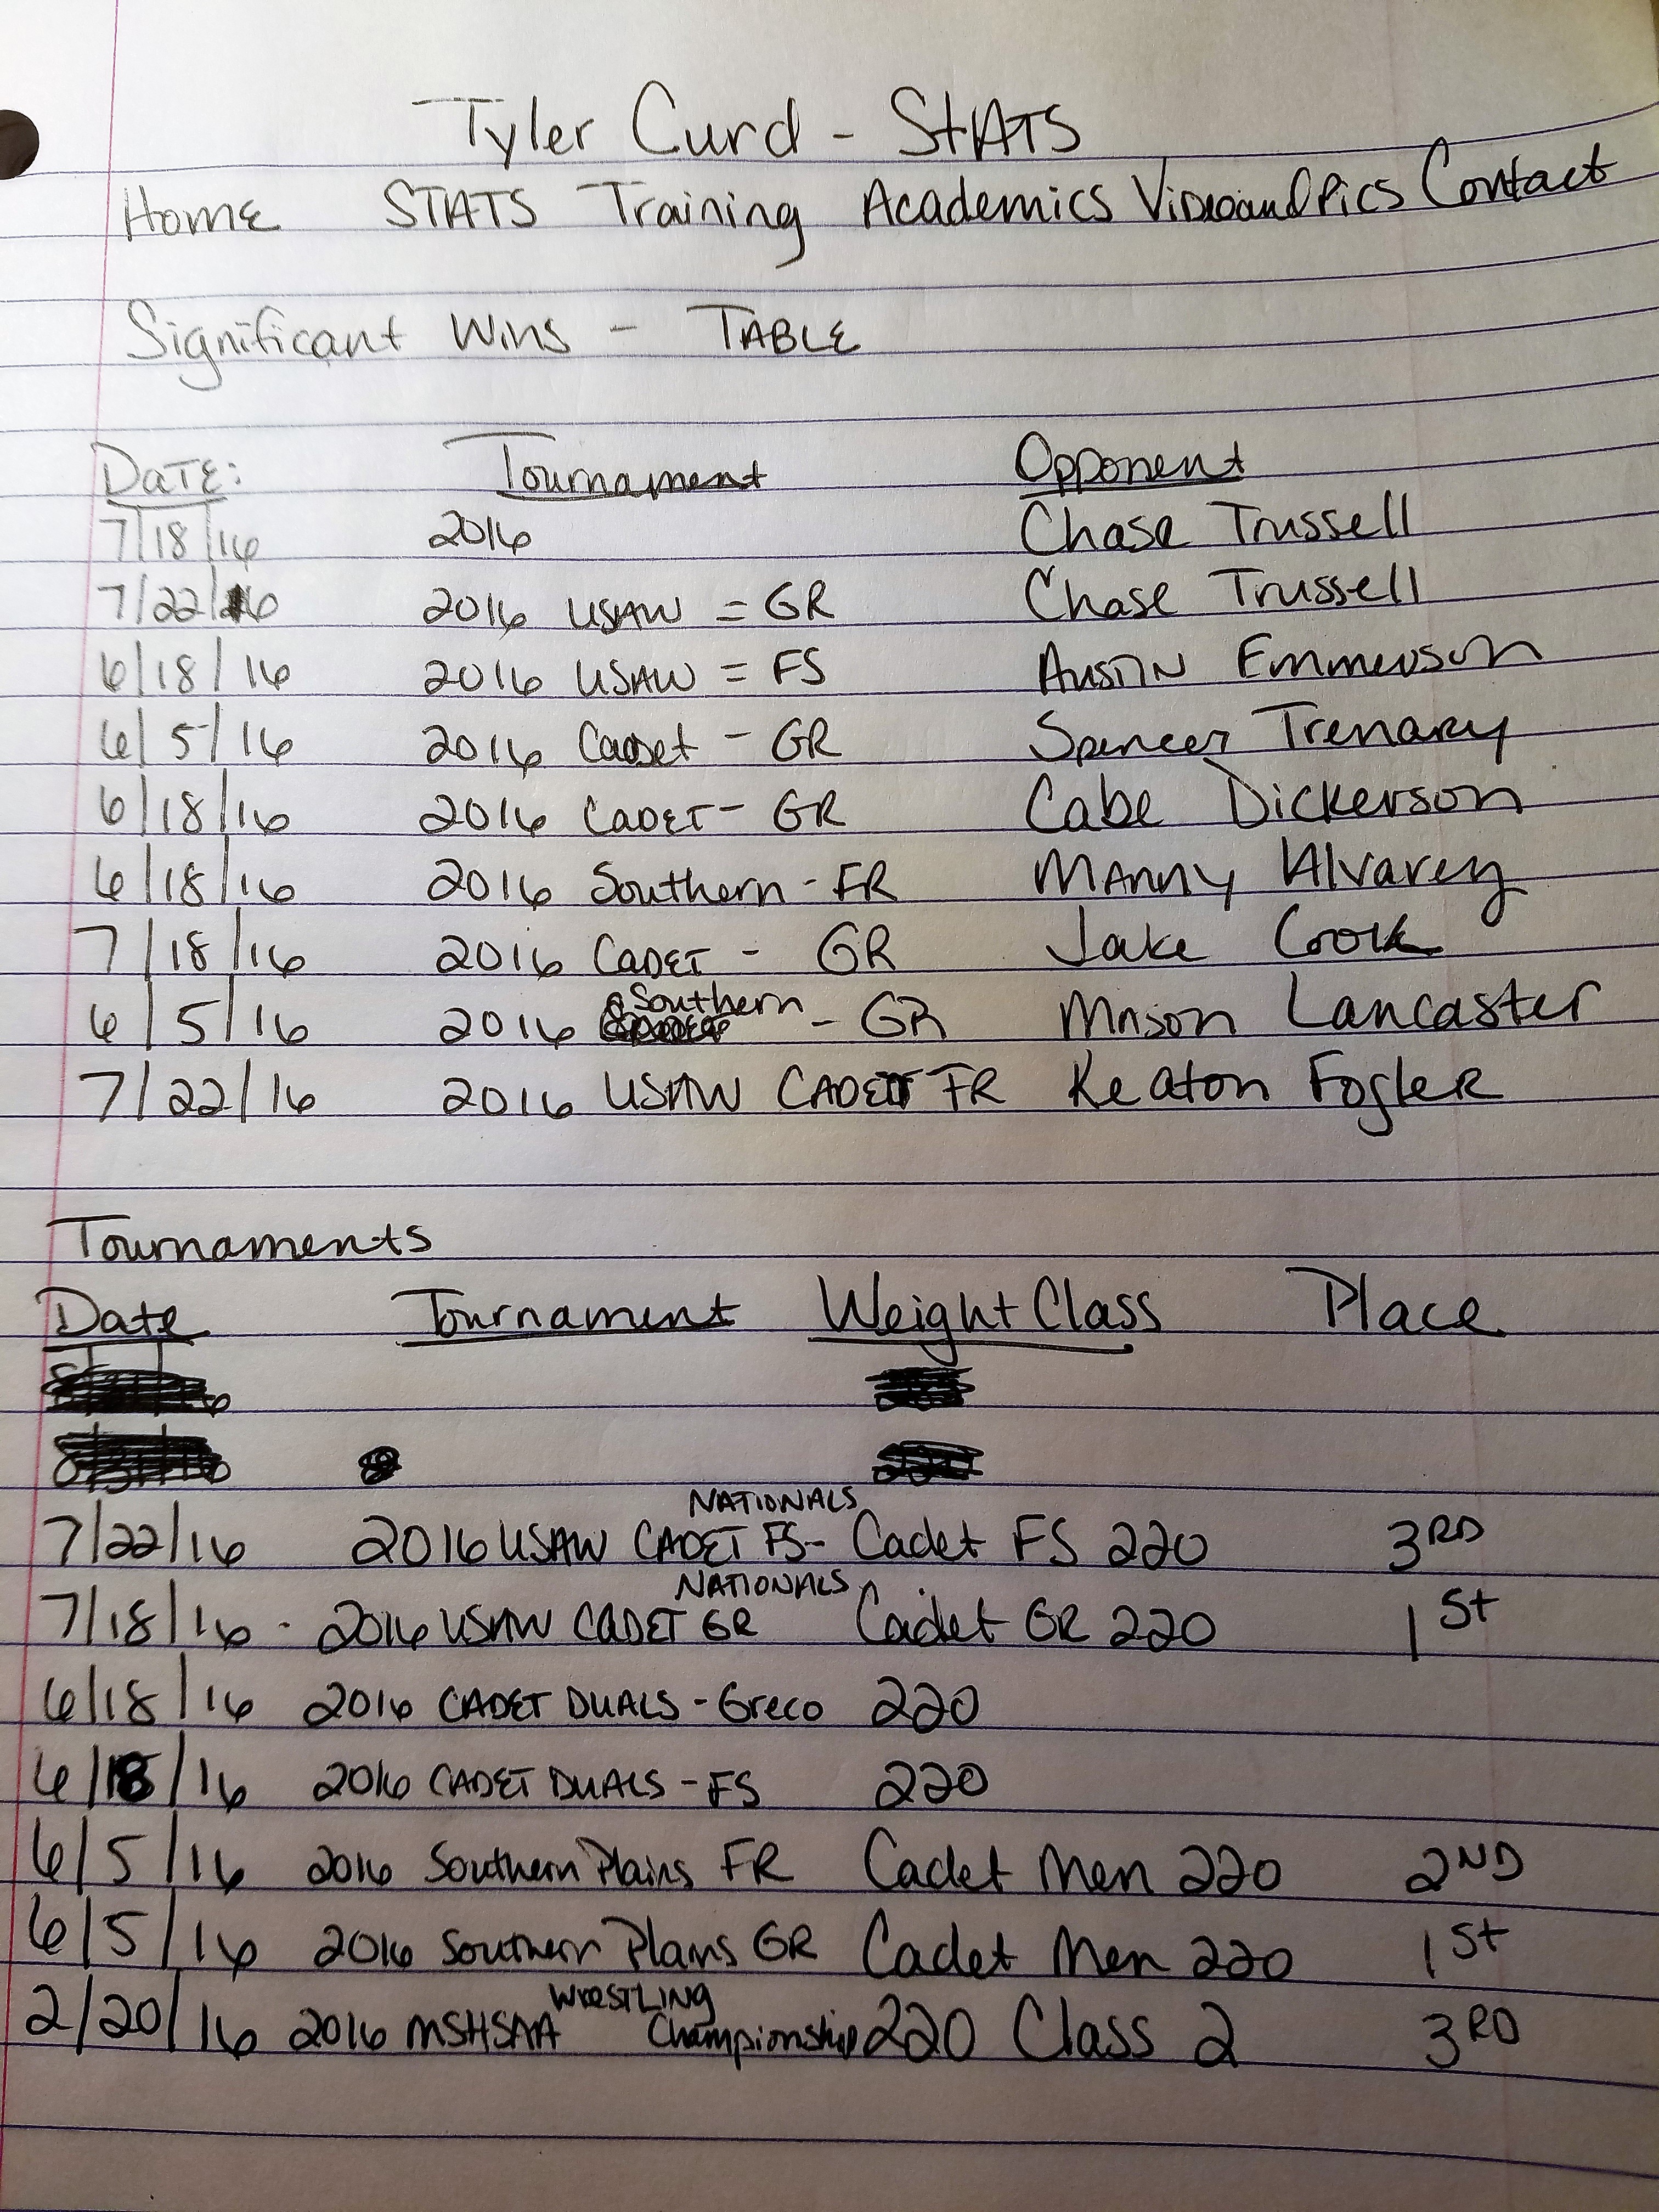 Tyler Curd - StATS
Home STATS Training Academics Video and Pics Contact
Significant Wins - TABLE
DATE: Tournament Opponent
7/18/16 2016 Chase Trussell
7/22/16 2016 USAW = GR Chase Trussell
6/18/16 2016 USAW = FS Austin Emmerson
6/5/16 2016 Cadet - GR Spencer Trenary
6/18/16 2016 CADET - GR Cabe Dickerson
6/18/16 2016 Southern - FR Manny Alvarez
7/18/16 2016 CADET - GR Jake Cook
6/5/16 2016 Southern - GR Mason Lancaster
7/22/16 2016 USAW CADET FR Keaton Fogler
Tournaments
Date Tournament Weight Class Place
NATIONALS
7/22/16 2016 USAW CADET FS - Cadet FS 220 3RD
NATIONALS
7/18/16 - 2016 USAW CADET GR Cadet GR 220 1st
6/18/16 2016 CADET DUALS - Greco 220
6/18/16 2016 CADET DUALS - FS 220
6/5/16 2016 Southern Plains FR Cadet Men 220 2ND
6/5/16 2016 Southern Plains GR Cadet Men 220 1st
WRESTLING
2/20/16 2016 MSHSAA Championship 220 Class 2 3RD